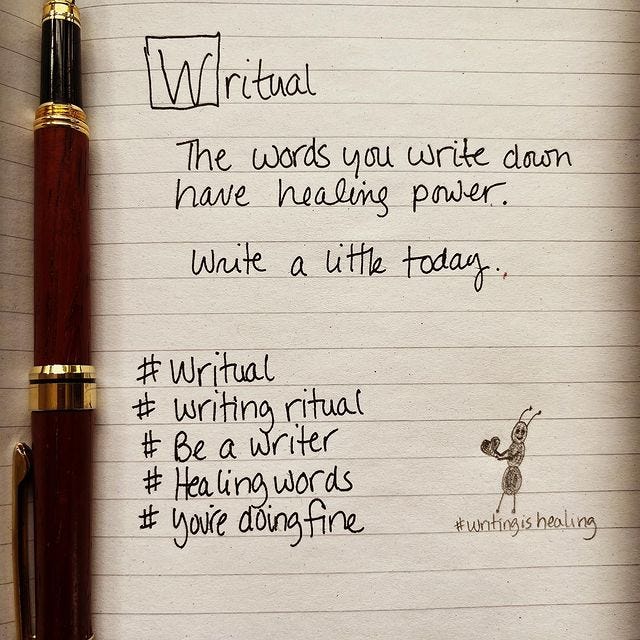 Writual
The words you write down
have healing power.
Write a little today..
# Writual
# writing ritual
# Be a writer
# Healing words
# you're doing fine
#writingishealing